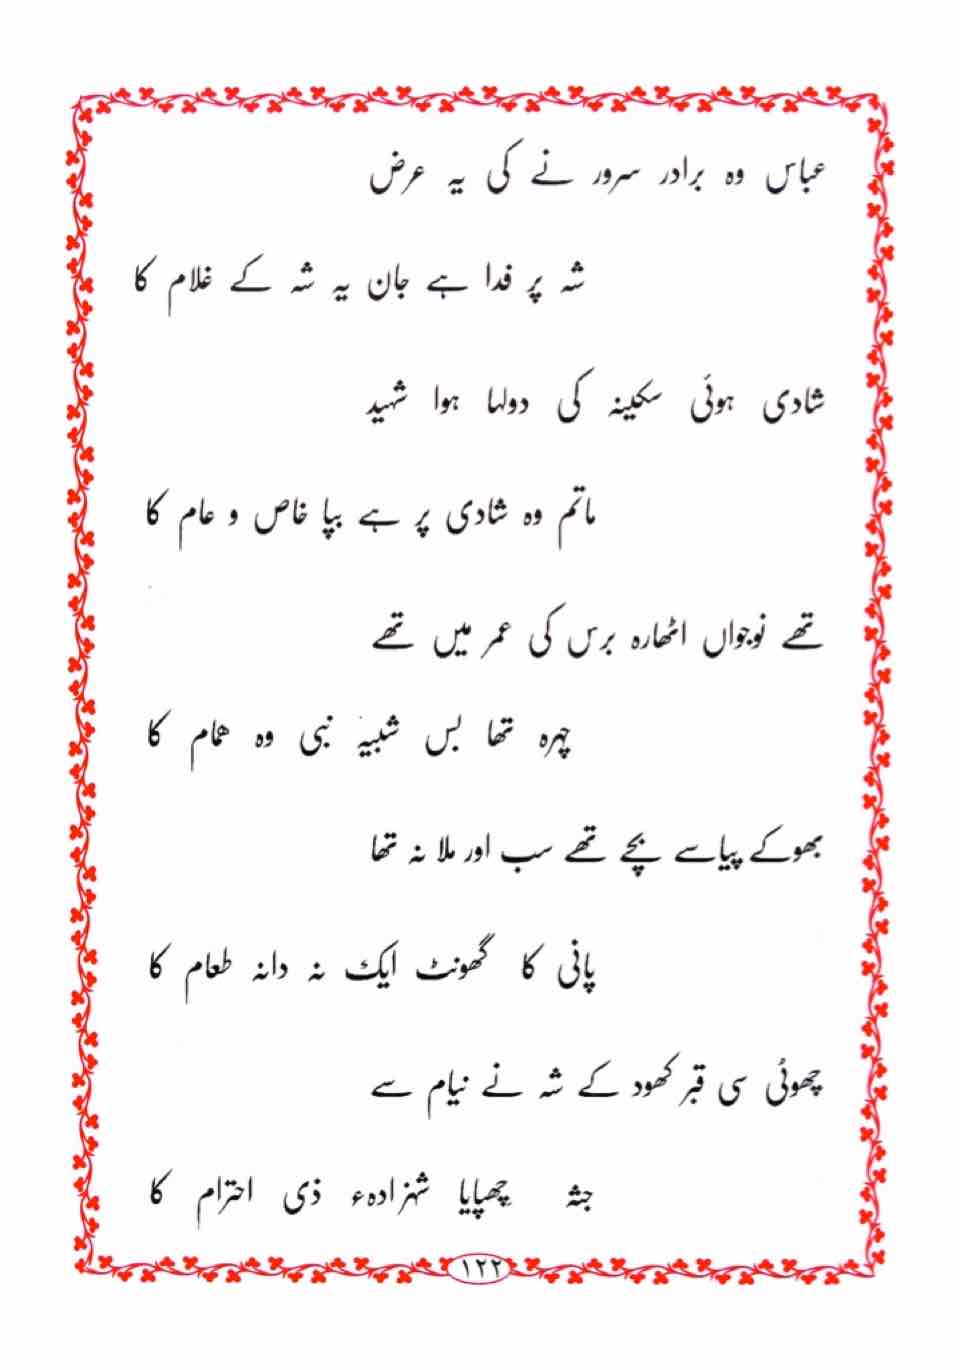 عباس وہ برادر سرور نے کی یہ عرض
شہ پر فدا ہے جان یہ شہ کے غلام کا
شادی ہوئی سکینہ کی دولہا ہوا شہید
ماتم وہ شادی پر ہے بپا خاص و عام کا
تھے نوجواں اٹھارہ برس کی عمر میں تھے
چہرہ تھا بس شبیہ نبی وہ ھمام کا
بھوکے پیاسے بچے تھے سب اور ملا نہ تھا
پانی کا گھونٹ ایک نہ دانہ طعام کا
چھوٹی سی قبر کھود کے شہ نے نیام سے
جثہ چھپایا شہزادہء ذی احترام کا
۱۲۲